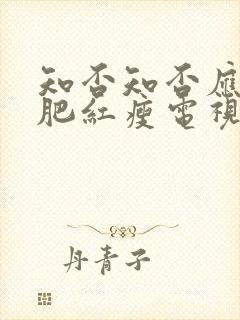 知否知否應
肥紅瘦電視
丹青子